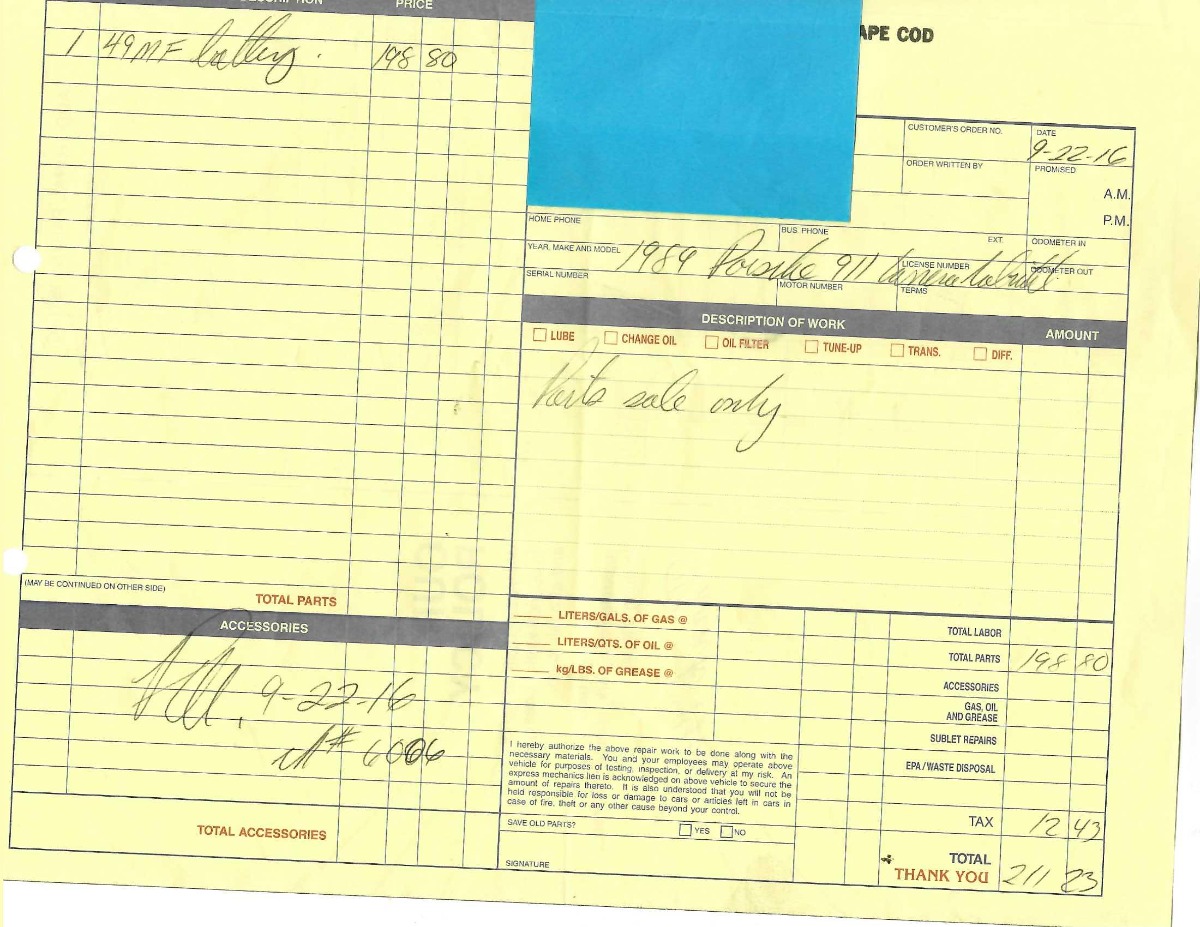 DESCRIPTION PRICE
1 49MF battery. 198 80
APE COD
CUSTOMER'S ORDER NO. DATE 9-22-16
ORDER WRITTEN BY PROMISED
A.M.
P.M.
HOME PHONE BUS. PHONE EXT. ODOMETER IN
YEAR, MAKE AND MODEL 1989 Porsche 911 Carrera Cabriolet
LICENSE NUMBER ODOMETER OUT
SERIAL NUMBER MOTOR NUMBER TERMS
DESCRIPTION OF WORK AMOUNT
LUBE CHANGE OIL OIL FILTER TUNE-UP TRANS. DIFF.
Parts sale only
(MAY BE CONTINUED ON OTHER SIDE)
TOTAL PARTS
ACCESSORIES
9-22-16
# 6006
TOTAL ACCESSORIES
LITERS/GALS. OF GAS @
LITERS/QTS. OF OIL @
kg/LBS. OF GREASE @
I hereby authorize the above repair work to be done along with the
necessary materials. You and your employees may operate above
vehicle for purposes of testing, inspection, or delivery at my risk. An
express mechanics lien is acknowledged on above vehicle to secure the
amount of repairs thereto. It is also understood that you will not be
held responsible for loss or damage to cars or articles left in cars in
case of fire, theft or any other cause beyond your control.
SAVE OLD PARTS? YES NO
SIGNATURE
TOTAL LABOR
TOTAL PARTS 198 80
ACCESSORIES
GAS, OIL
AND GREASE
SUBLET REPAIRS
EPA / WASTE DISPOSAL
TAX 12 43
TOTAL
THANK YOU 211 23